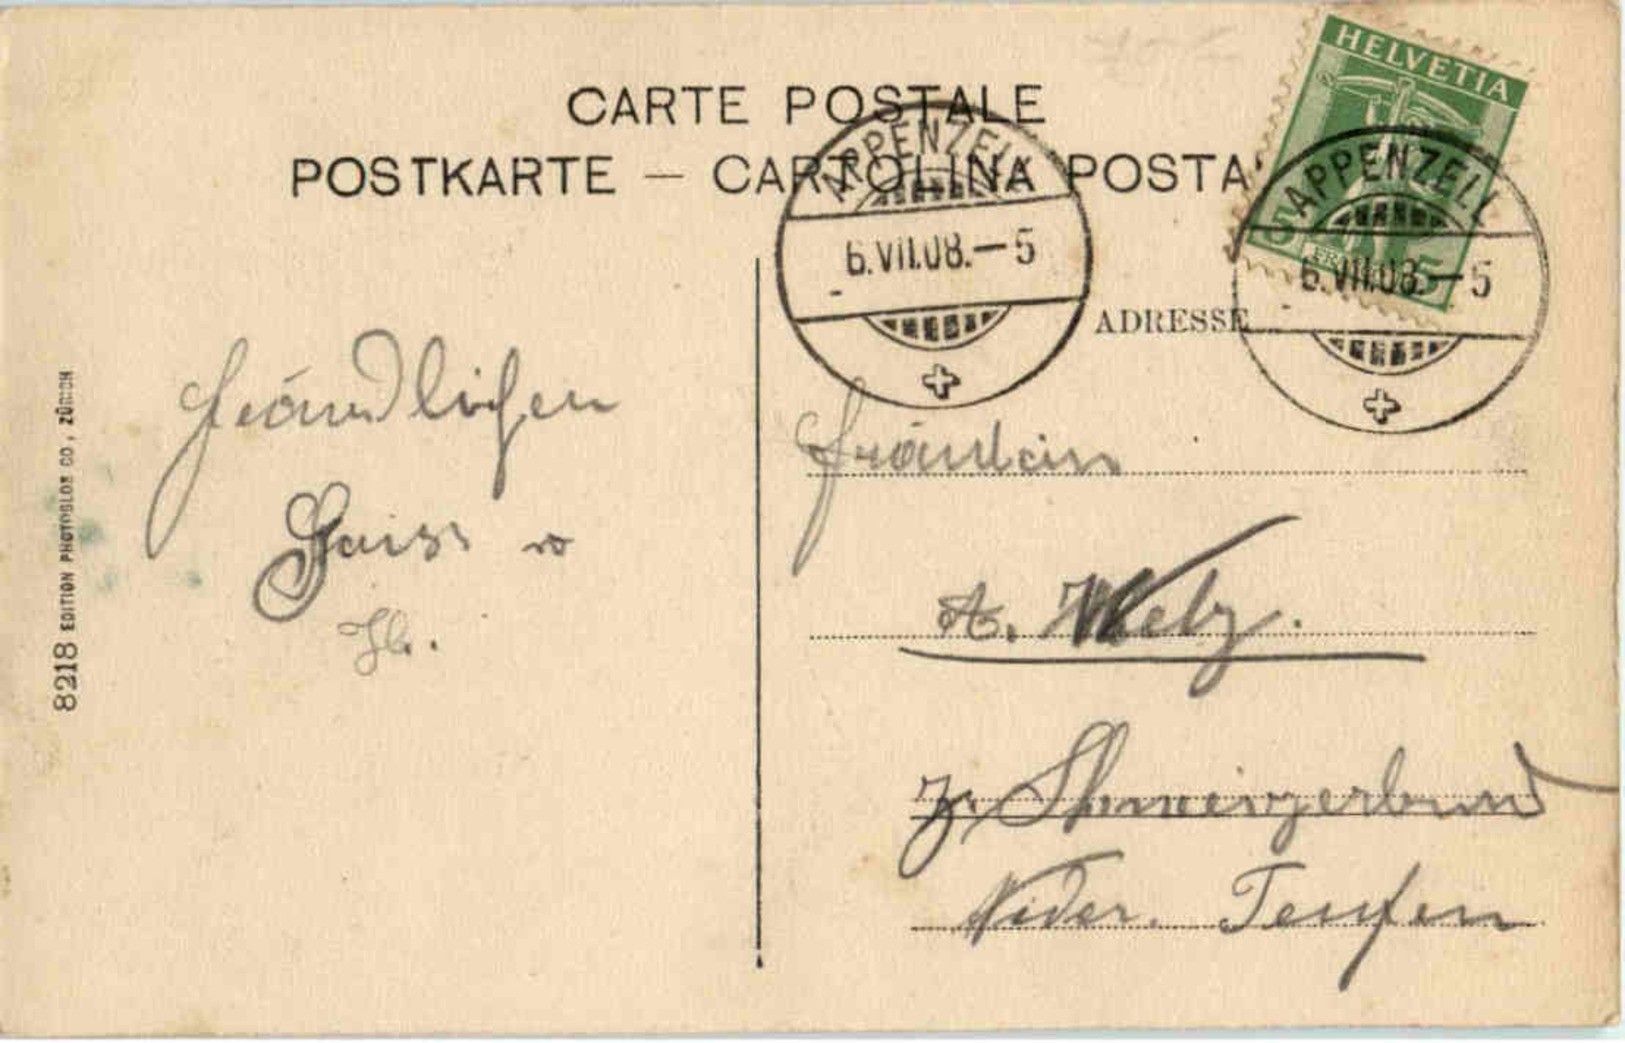 CARTE POSTALE
POSTKARTE — CARTOLINA POSTA
HELVETIA
5 5
APPENZELL
6.VII.08.—5
APPENZELL
6.VII.08.—5
ADRESSE
8218 EDITION PHOTOGLOB CO, ZÜRICH
Fräulein
A. Welz.
z. Schweizerbund
Nieder. Teufen